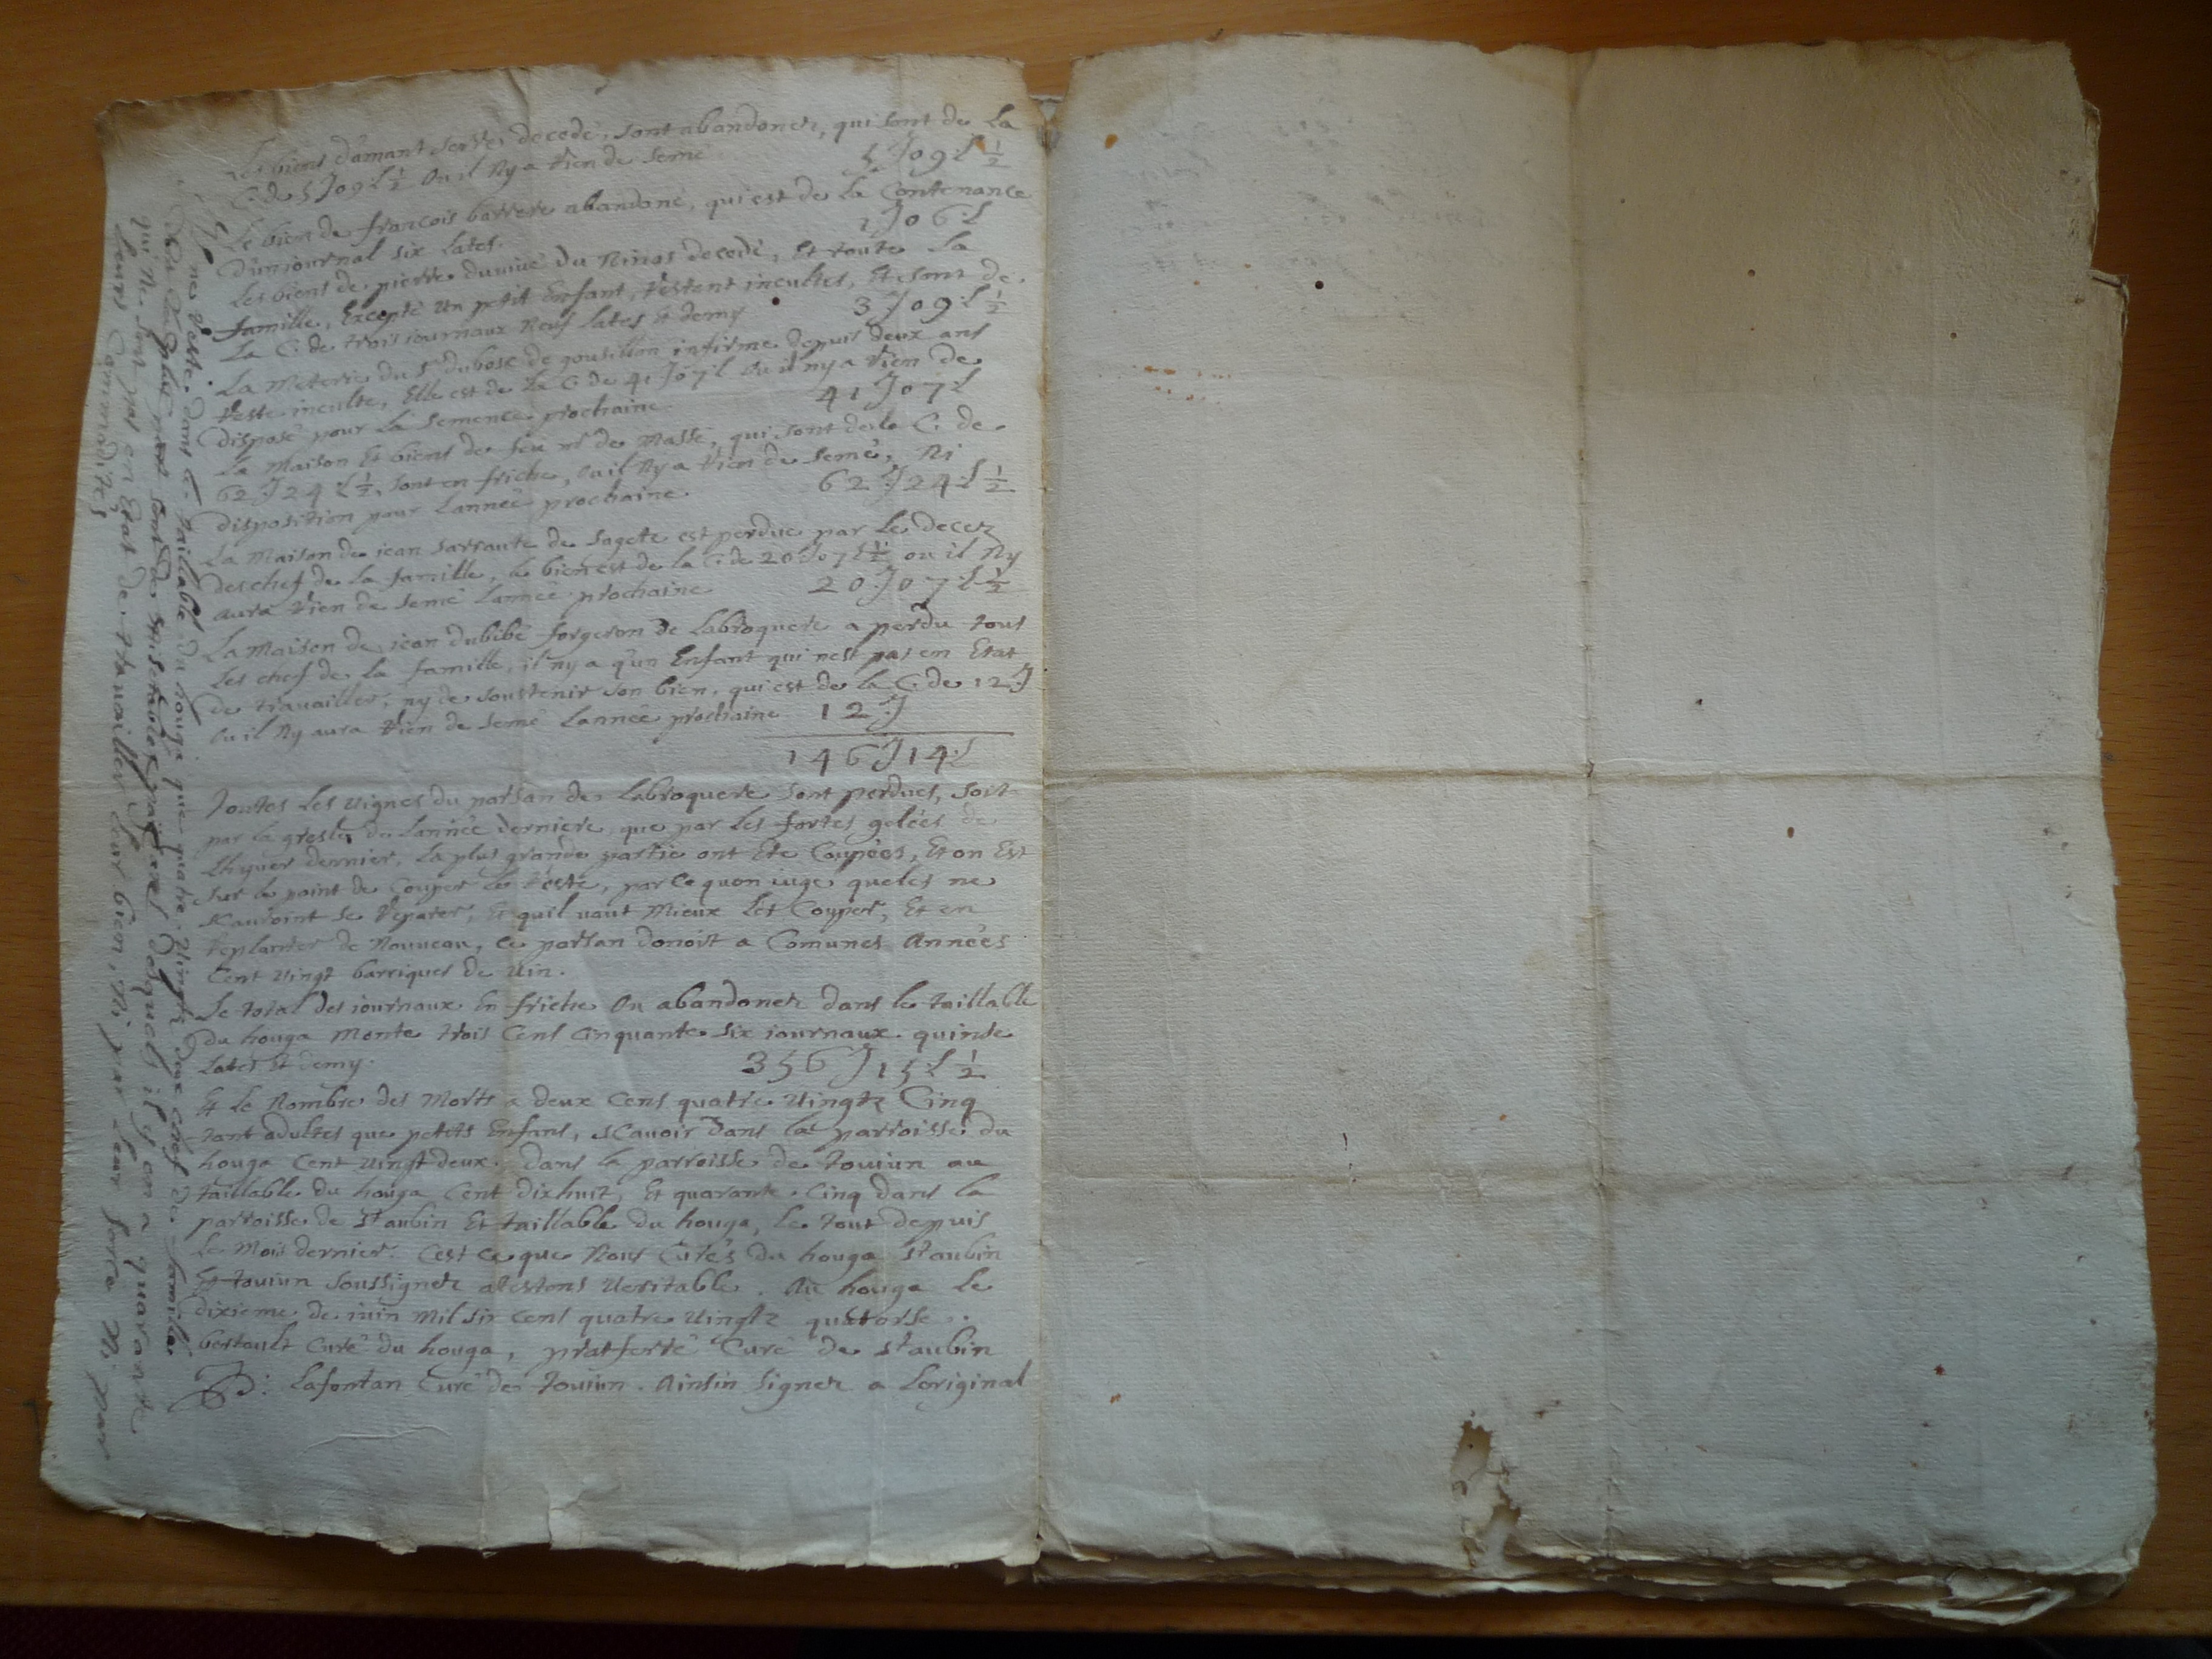 Les biens damant serres decedé, sont abandonez, qui sont de La
C. de 5 J 09 L ½ Ou il Ny a rien de semé 5 J 09 L ½
Le bien de francois barrere abandoné, qui est de La Contenance
Dun journal six lates. 1 J 06 L
Les biens de pierre duviué du Ninos decedé, Et toute La
famille, Excepté Un petit Enfant, restent incultes, Et sont de
La C. de trois iournaux neuf lates Et demy 3 J 09 L ½
La Meterie du Sr dubosc de gousillon infirme depuis deux ans
reste inculte, Elle est de La C. de 41 J 07 L Ou il ny a rien de
disposé pour La semence prochaine 41 J 07 L
La Maison Et biens de feu mr de Massé, qui sont de la C. de
62 J 24 L ½, sont en friche, Ou il Ny a rien de semé, Ni
disposition pour Lannée prochaine. 62 J 24 L ½
La Maison de iean sarraute de sagete est perdue par Le decez
des chef de la famille, le bien est de la C. de 20 J 07 L ½ ou il Ny
aura rien de semé Lannée prochaine 20 J 07 L ½
La Maison de iean dubibé forgeron de Labroquere a perdu tous
Les chef de la famille, il ny a qun Enfant qui nest pas en Etat
de travailler, ny de soustenir son bien, qui est de la C. de 12 J
Ou il Ny aura rien de semé Lannée prochaine 12 J
146 J 14 L
Toutes Les vignes du parsan de Labroquere sont perdues, soit
par la gresle de Lannée derniere, que par Les fortes gelées de
Lhyuer dernier, La plus grande partie ont Ete Coupées, Et on Est
sur le point de Couper Le reste, par ce quon iuge queles ne
scauroint se reparer, Et quil vaut Mieux Les Couper, Et en
replanter de Nouveau, Ce parsan donoit a Comunes Années
Cent vingt barriques de vin.
Le total des iournaux En friche Ou abandonez dans le taillable
du houga Monte trois Cens Cinquante six iournaux quinse
Lates Et demy. 356 J 15 L ½
Et Le Nombre des Morts a deux Cens quatre Vingtz Cinq
tant adultes que petits Enfans, scavoir dans la parroisse du
houga Cent vingt deux, dans la parroisse de touiun au
taillable du houga Cent dixhuit, Et quarante Cinq dans la
parroisse de St aubin Et taillable du houga, Le tout depuis
Le Mois dernier. Cest Ce que Nous Curés du houga St aubin
Et touiun soussignez atestons Veritable. Au houga Le
dixieme de iuin Mil six cens quatre Vingtz quatorse..
bertault Curé du houga, pratferré Curé de St aubin
Lafontan Curé de touiun. Ainsin signez a Loriginal
ne reste dans le taillable du houga que quatre vingts dix chef de famille
qui ne sont pas en Etat de travailler Leur bien, Ni par Leur force Ni par
Leurs Commodités